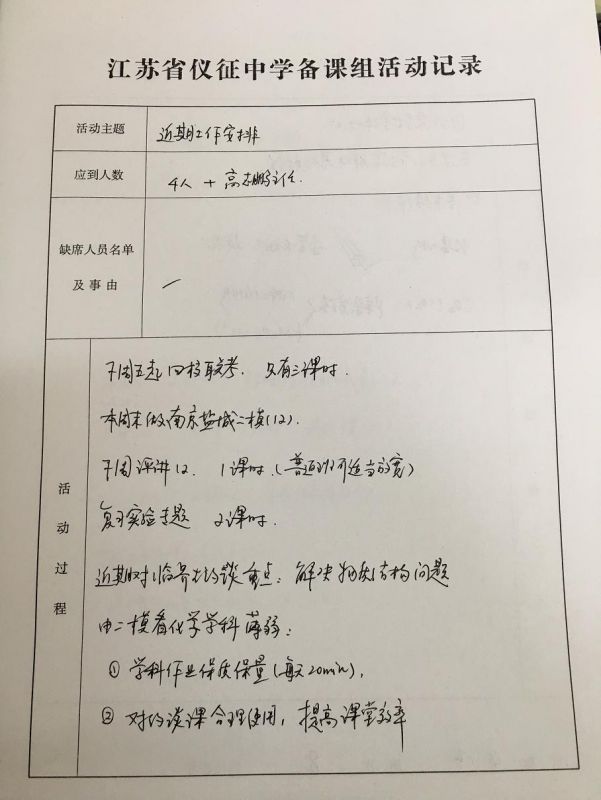 江苏省仪征中学备课组活动记录
活动主题
近期工作安排
应到人数
4人 + 高志鹏主任.
缺席人员名单
及事由
活动过程
下周五起四校联考. 只有三课时.
本周末做南京盐城二模(12).
下周评讲12. 1课时.(普通班可适当放宽)
复习实验专题 2课时.
近期对临界生约谈重点: 解决物质结构问题
由二模看化学学科薄弱:
① 学科作业保质保量(每天20min),
② 对约谈课合理使用, 提高课堂效率